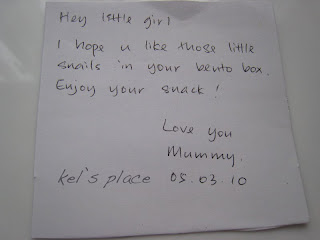 Hey little girl
I hope u like those little
snails in your bento box.
Enjoy your snack!
Love you
Mummy.
kel's place 05.03.10